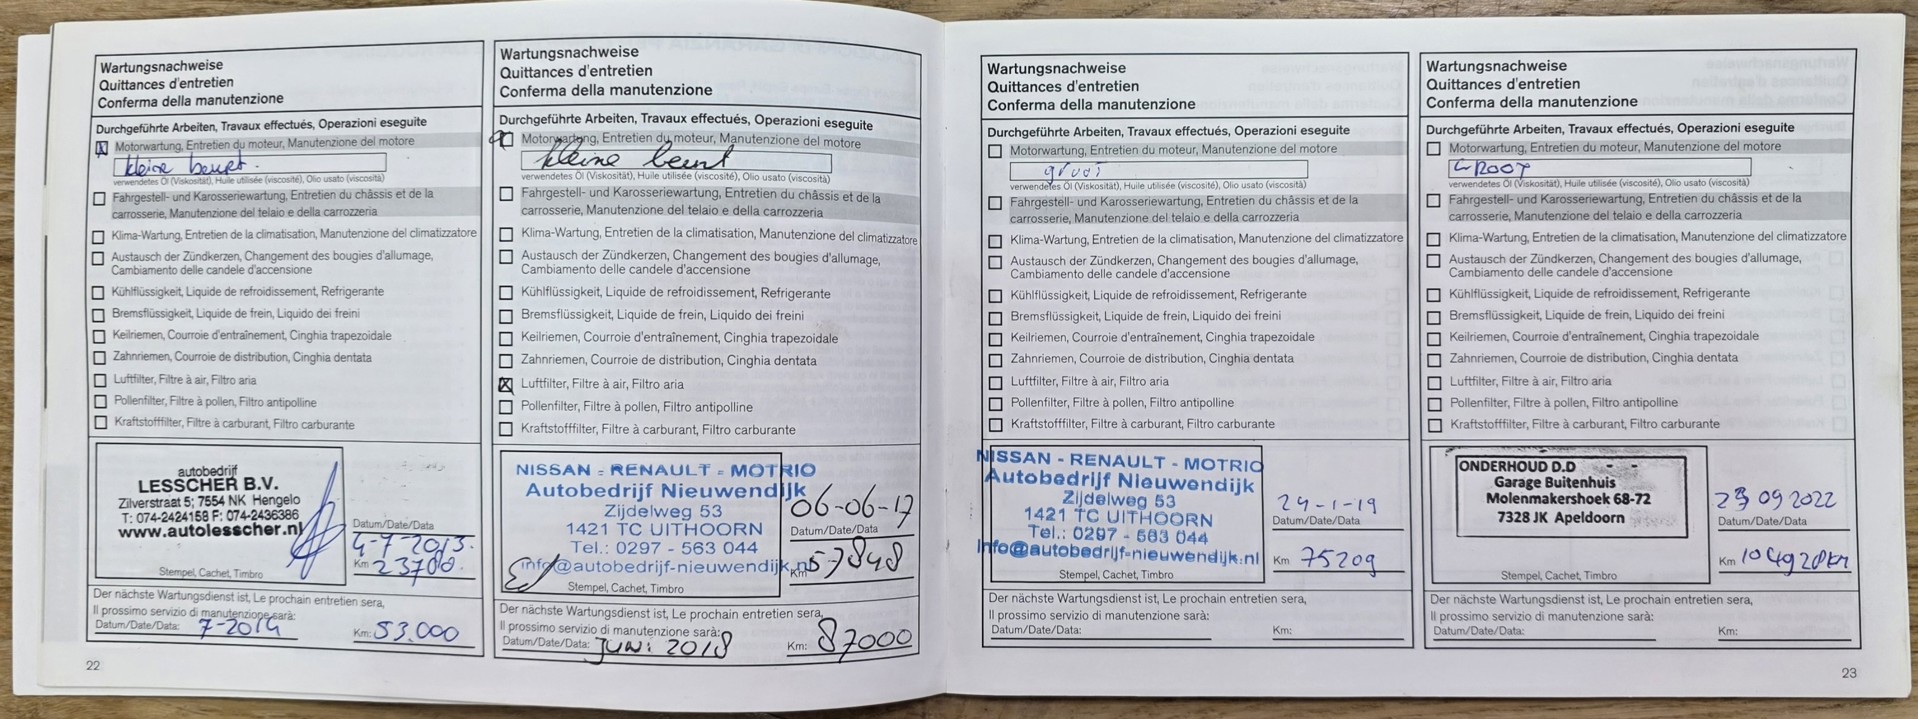 Wartungsnachweise
Quittances d'entretien
Conferma della manutenzione
Durchgeführte Arbeiten, Travaux effectués, Operazioni eseguite
Motorwartung, Entretien du moteur, Manutenzione del motore
kleine beurt.
verwendetes Öl (Viskosität), Huile utilisée (viscosité), Olio usato (viscosità)
Fahrgestell- und Karosseriewartung, Entretien du châssis et de la
carrosserie, Manutenzione del telaio e della carrozzeria
Klima-Wartung, Entretien de la climatisation, Manutenzione del climatizzatore
Austausch der Zündkerzen, Changement des bougies d'allumage,
Cambiamento delle candele d'accensione
Kühlflüssigkeit, Liquide de refroidissement, Refrigerante
Bremsflüssigkeit, Liquide de frein, Liquido dei freini
Keilriemen, Courroie d'entraînement, Cinghia trapezoidale
Zahnriemen, Courroie de distribution, Cinghia dentata
Luftfilter, Filtre à air, Filtro aria
Pollenfilter, Filtre à pollen, Filtro antipolline
Kraftstofffilter, Filtre à carburant, Filtro carburante
autobedrijf
LESSCHER B.V.
Zilverstraat 5; 7554 NK Hengelo
T: 074-2424158 F: 074-2436386
www.autolesscher.nl
Stempel, Cachet, Timbro
Datum/Date/Data
4-7-2013.
Km 23700.
Der nächste Wartungsdienst ist, Le prochain entretien sera,
Il prossimo servizio di manutenzione sarà:
Datum/Date/Data: 7-2014 Km: 53.000
22
Wartungsnachweise
Quittances d'entretien
Conferma della manutenzione
Durchgeführte Arbeiten, Travaux effectués, Operazioni eseguite
Motorwartung, Entretien du moteur, Manutenzione del motore
kleine beurt
verwendetes Öl (Viskosität), Huile utilisée (viscosité), Olio usato (viscosità)
Fahrgestell- und Karosseriewartung, Entretien du châssis et de la
carrosserie, Manutenzione del telaio e della carrozzeria
Klima-Wartung, Entretien de la climatisation, Manutenzione del climatizzatore
Austausch der Zündkerzen, Changement des bougies d'allumage,
Cambiamento delle candele d'accensione
Kühlflüssigkeit, Liquide de refroidissement, Refrigerante
Bremsflüssigkeit, Liquide de frein, Liquido dei freini
Keilriemen, Courroie d'entraînement, Cinghia trapezoidale
Zahnriemen, Courroie de distribution, Cinghia dentata
Luftfilter, Filtre à air, Filtro aria
Pollenfilter, Filtre à pollen, Filtro antipolline
Kraftstofffilter, Filtre à carburant, Filtro carburante
NISSAN - RENAULT - MOTRIO
Autobedrijf Nieuwendijk
Zijdelweg 53
1421 TC UITHOORN
Tel.: 0297 - 563 044
info@autobedrijf-nieuwendijk.nl
Stempel, Cachet, Timbro
06-06-17
Datum/Date/Data
Km 57848
Der nächste Wartungsdienst ist, Le prochain entretien sera,
Il prossimo servizio di manutenzione sarà:
Datum/Date/Data: Juni 2018 Km: 87000
Wartungsnachweise
Quittances d'entretien
Conferma della manutenzione
Durchgeführte Arbeiten, Travaux effectués, Operazioni eseguite
Motorwartung, Entretien du moteur, Manutenzione del motore
verwendetes Öl (Viskosität), Huile utilisée (viscosité), Olio usato (viscosità)
Fahrgestell- und Karosseriewartung, Entretien du châssis et de la
carrosserie, Manutenzione del telaio e della carrozzeria
Klima-Wartung, Entretien de la climatisation, Manutenzione del climatizzatore
Austausch der Zündkerzen, Changement des bougies d'allumage,
Cambiamento delle candele d'accensione
Kühlflüssigkeit, Liquide de refroidissement, Refrigerante
Bremsflüssigkeit, Liquide de frein, Liquido dei freini
Keilriemen, Courroie d'entraînement, Cinghia trapezoidale
Zahnriemen, Courroie de distribution, Cinghia dentata
Luftfilter, Filtre à air, Filtro aria
Pollenfilter, Filtre à pollen, Filtro antipolline
Kraftstofffilter, Filtre à carburant, Filtro carburante
NISSAN - RENAULT - MOTRIO
Autobedrijf Nieuwendijk
Zijdelweg 53
1421 TC UITHOORN
Tel.: 0297 - 563 044
info@autobedrijf-nieuwendijk.nl
Stempel, Cachet, Timbro
24-1-19
Datum/Date/Data
Km 75209
Der nächste Wartungsdienst ist, Le prochain entretien sera,
Il prossimo servizio di manutenzione sarà:
Datum/Date/Data: Km:
Wartungsnachweise
Quittances d'entretien
Conferma della manutenzione
Durchgeführte Arbeiten, Travaux effectués, Operazioni eseguite
Motorwartung, Entretien du moteur, Manutenzione del motore
GROOT
verwendetes Öl (Viskosität), Huile utilisée (viscosité), Olio usato (viscosità)
Fahrgestell- und Karosseriewartung, Entretien du châssis et de la
carrosserie, Manutenzione del telaio e della carrozzeria
Klima-Wartung, Entretien de la climatisation, Manutenzione del climatizzatore
Austausch der Zündkerzen, Changement des bougies d'allumage,
Cambiamento delle candele d'accensione
Kühlflüssigkeit, Liquide de refroidissement, Refrigerante
Bremsflüssigkeit, Liquide de frein, Liquido dei freini
Keilriemen, Courroie d'entraînement, Cinghia trapezoidale
Zahnriemen, Courroie de distribution, Cinghia dentata
Luftfilter, Filtre à air, Filtro aria
Pollenfilter, Filtre à pollen, Filtro antipolline
Kraftstofffilter, Filtre à carburant, Filtro carburante
ONDERHOUD D.D
Garage Buitenhuis
Molenmakershoek 68-72
7328 JK Apeldoorn
Stempel, Cachet, Timbro
09 2022
Datum/Date/Data
Km 104920km
Der nächste Wartungsdienst ist, Le prochain entretien sera,
Il prossimo servizio di manutenzione sarà:
Datum/Date/Data: Km:
23